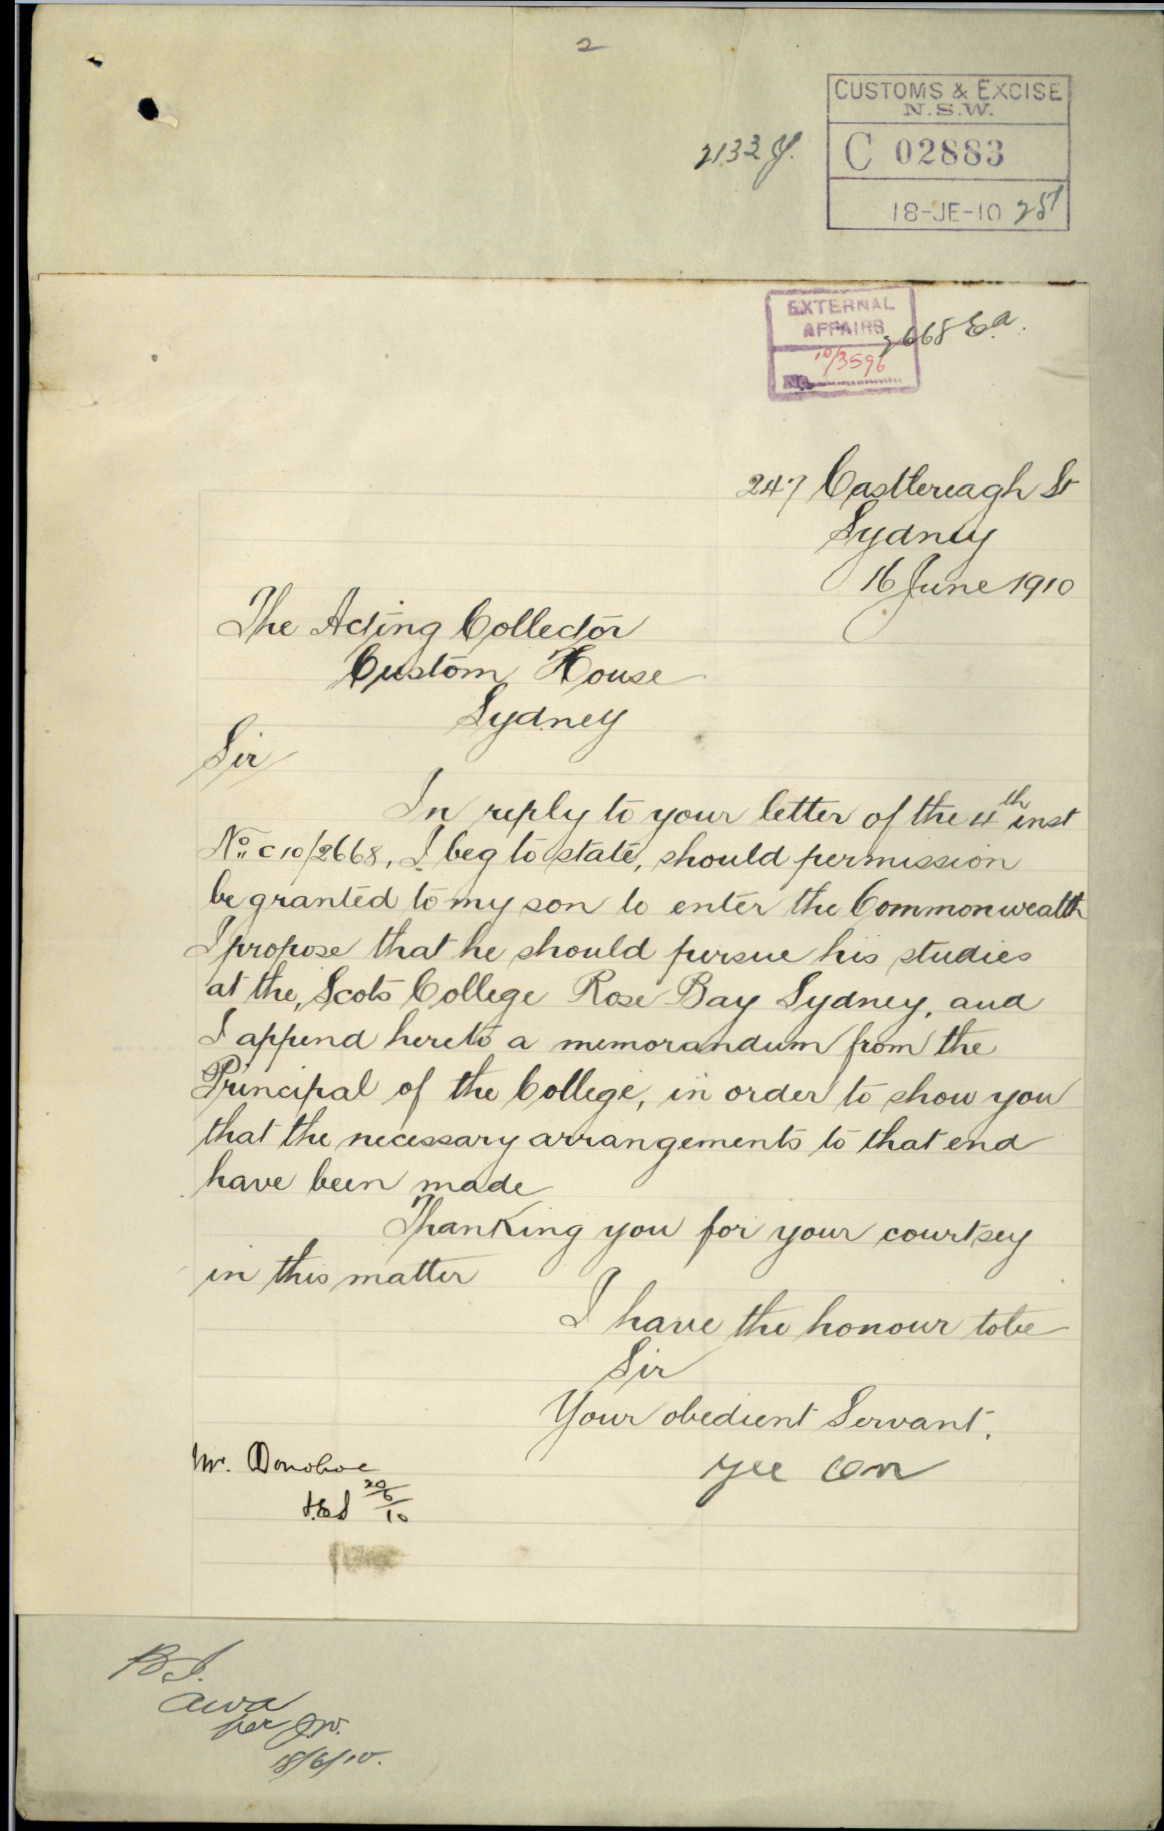 2
CUSTOMS & EXCISE
N.S.W.
2133
C 02883
18-JE-10
EXTERNAL
AFFAIRS
2668 Ea.
10/3596
No.
247 Castlereagh St
Sydney
16 June 1910
The Acting Collector
Custom House
Sydney
Sir
In reply to your letter of the 4th inst
No. C10/2668, I beg to state, should permission
be granted to my son to enter the Commonwealth
I propose that he should pursue his studies
at the, Scots College Rose Bay Sydney, and
I append hereto a memorandum from the
Principal of the College, in order to show you
that the necessary arrangements to that end
have been made
Thanking you for your courtsey
in this matter
I have the honour to be
Sir
Your obedient Servant.
Yee On
Mr. Donohoe
20/6/10
per
18/6/10.